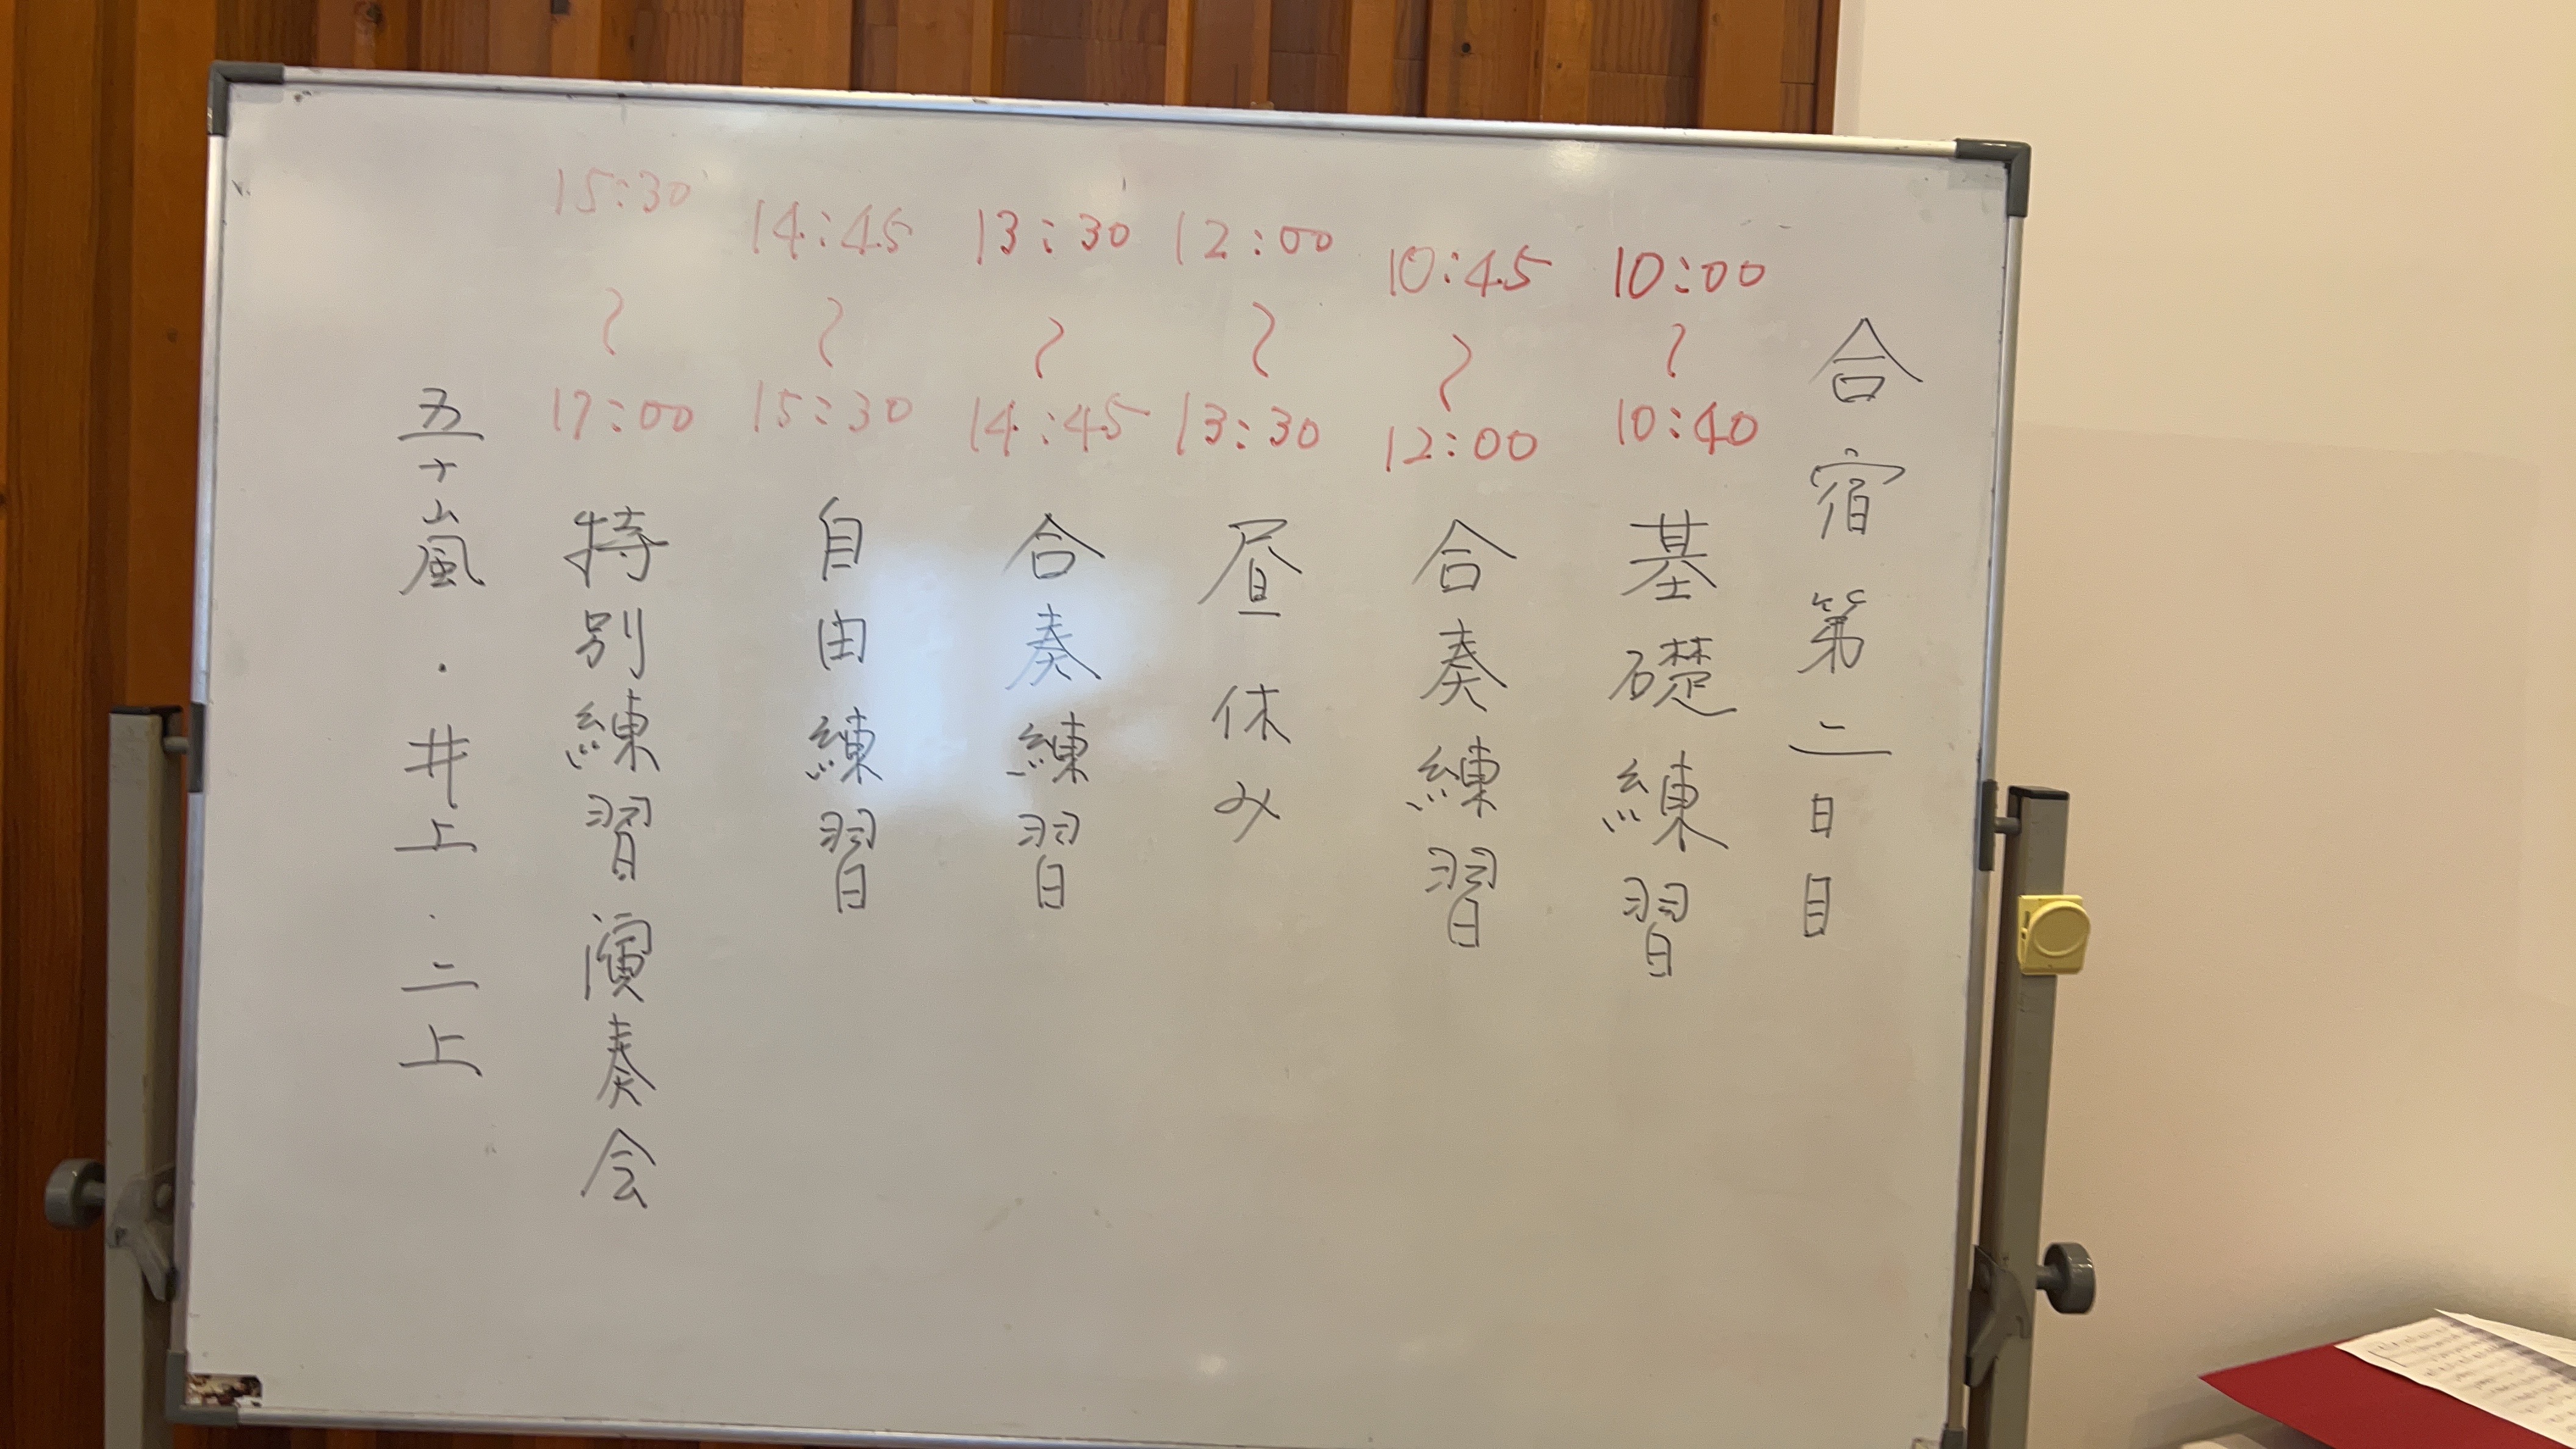 合宿第二日目
10:00〜10:40 基礎練習
10:45〜12:00 合奏練習
12:00〜13:30 昼休み
13:30〜14:45 合奏練習
14:45〜15:30 自由練習
15:30〜17:00 特別練習演奏会
五十嵐・井上・二上